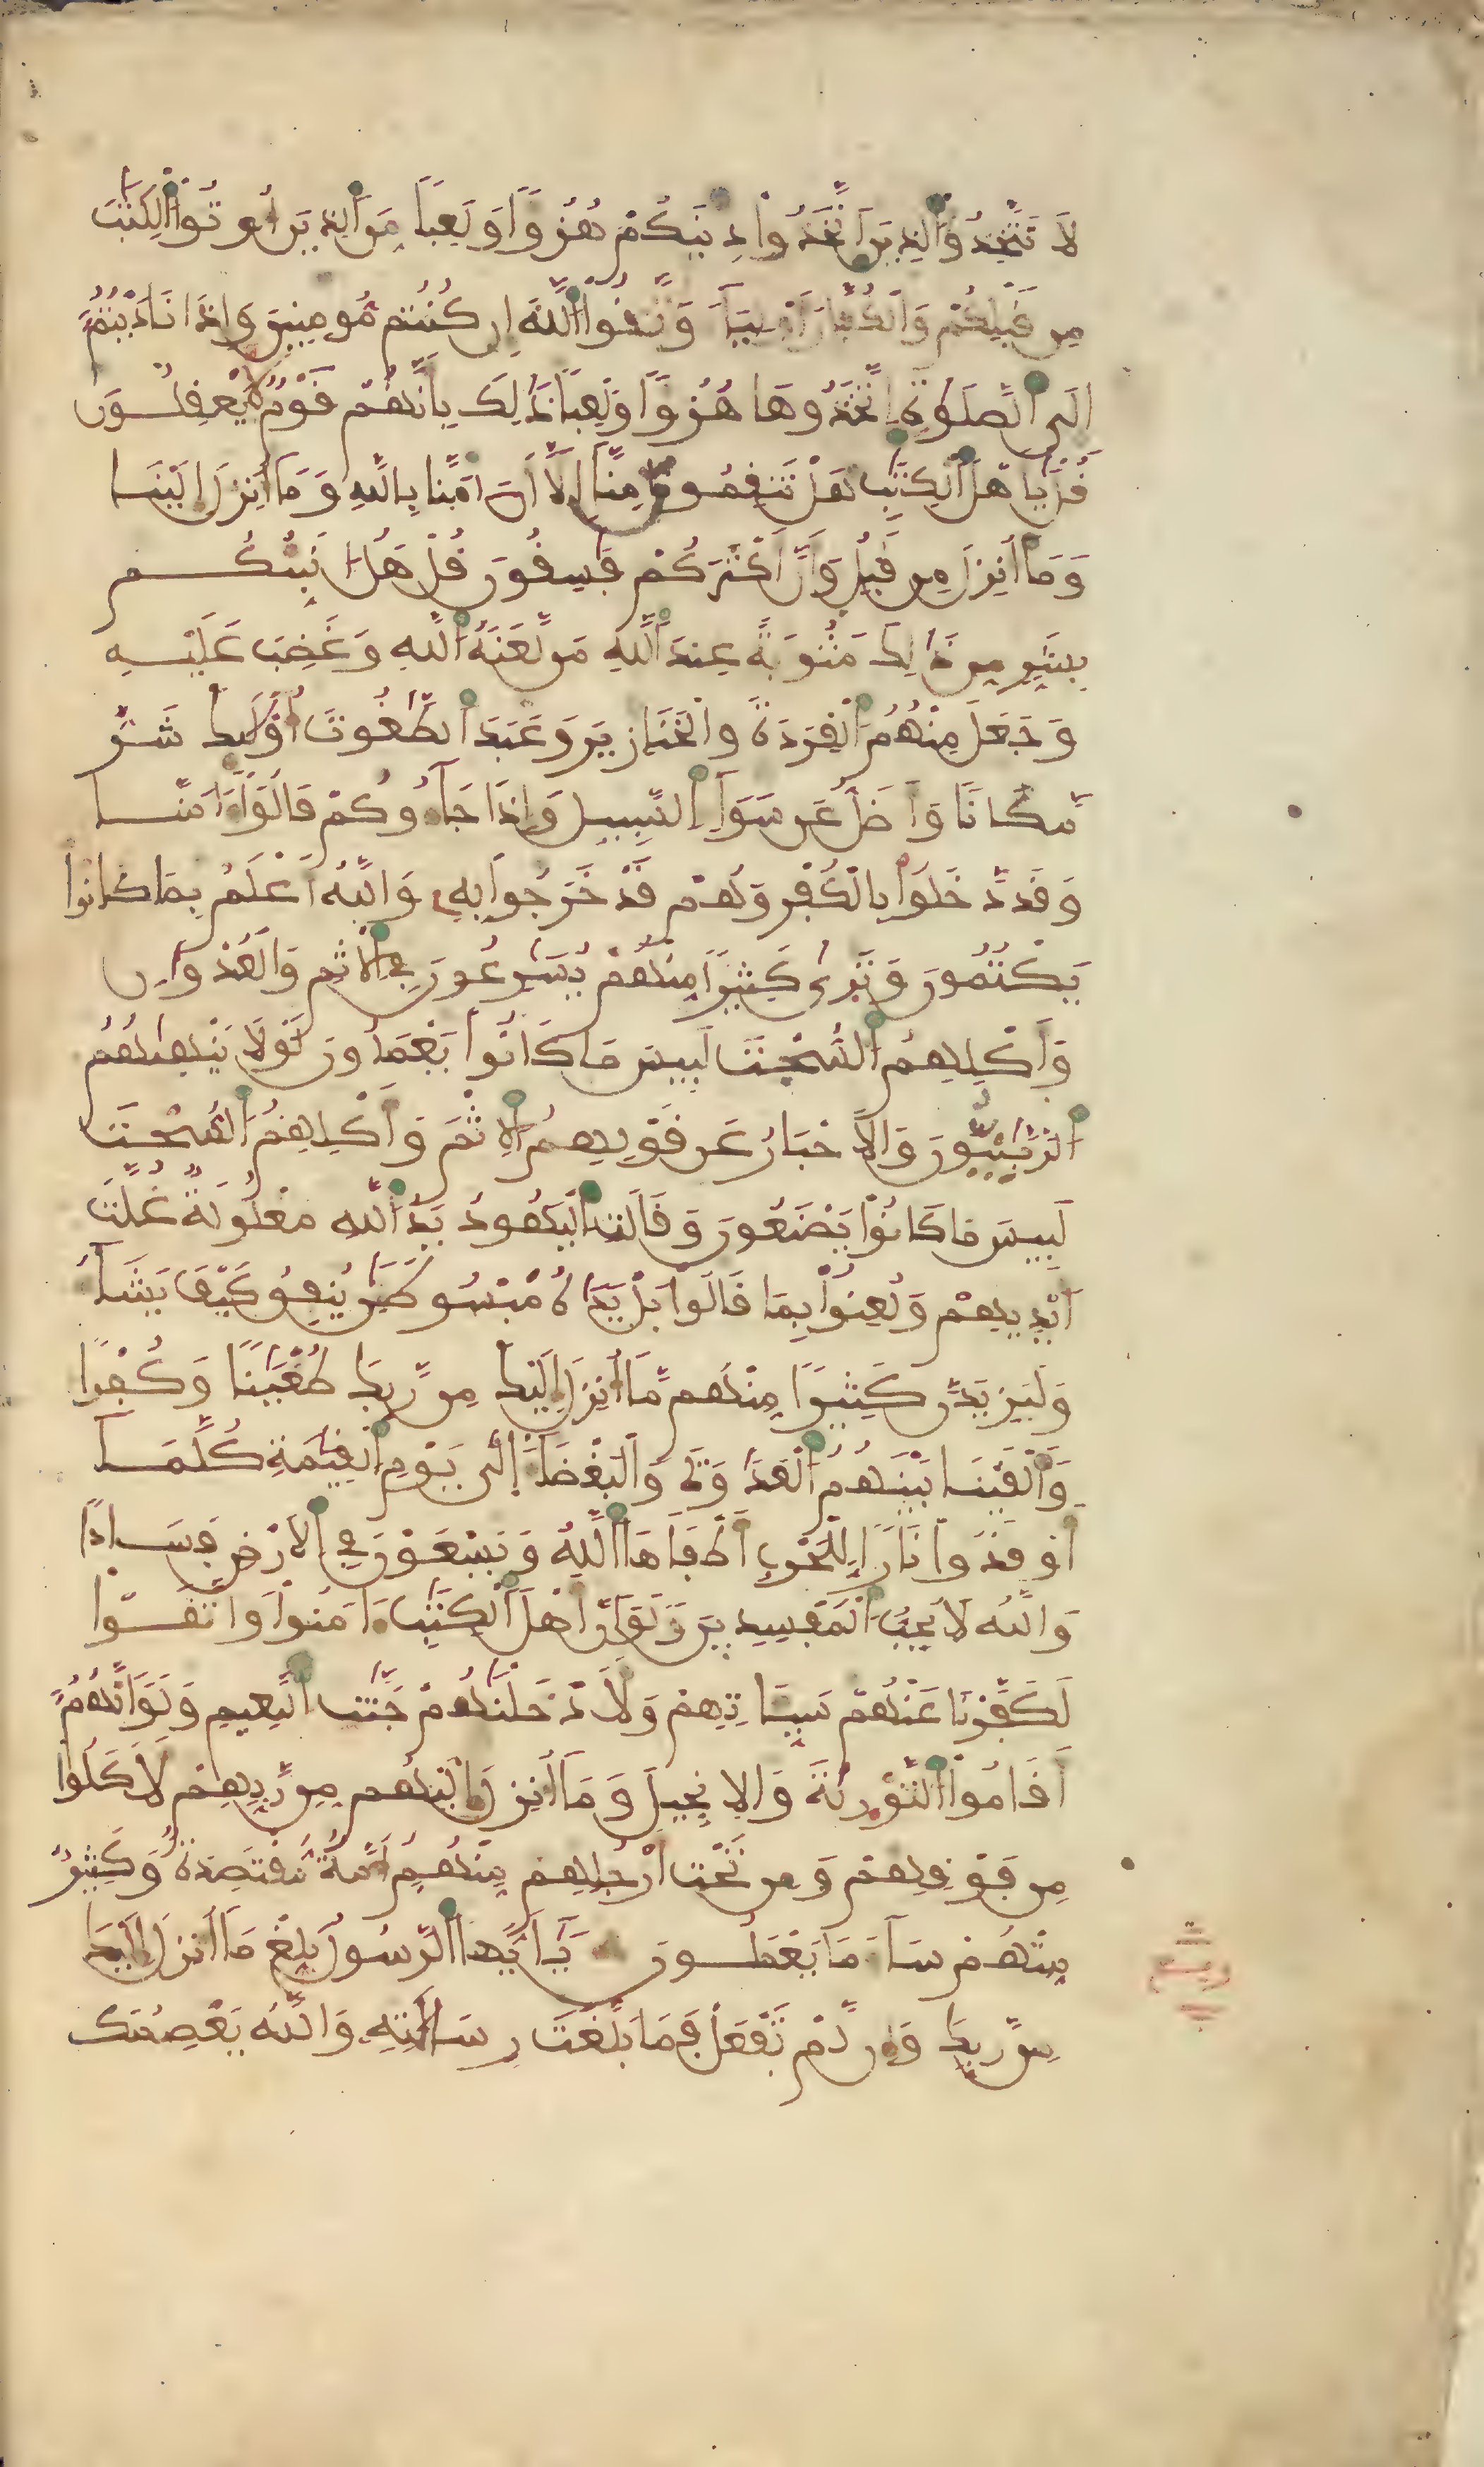 لَا تَتَّخِذُواْ الذِينَ اَتَّخَذُواْ دِينَكُمْ هُزُؤًا وَلَعِبًا مِّنَ الذِينَ أُوتُواْ الْكِتَٰبَ
مِن قَبْلِكُمْ وَالْكُفَّارَ أَوْلِيَآءَ وَاتَّقُواْ اللَّهَ إِن كُنتُم مُّومِنِينَ وَإِذَا نَادَيْتُمُ
إِلَى الصَّلَوٰةِ اِتَّخَذُوهَا هُزُؤًا وَلَعِبًا ذَٰلِكَ بِأَنَّهُمْ قَوْمٌ لَّا يَعْقِلُونَ
قُلْ يَٰأَهْلَ الْكِتَٰبِ هَلْ تَنقِمُونَ مِنَّا إِلَّا أَنَ اٰمَنَّا بِاللَّهِ وَمَا أُنزِلَ إِلَيْنَا
وَمَا أُنزِلَ مِن قَبْلُ وَأَنَّ أَكْثَرَكُمْ فَٰسِقُونَ قُلْ هَلُ انَبِّئُكُم
بِشَرٍّ مِّن ذَٰلِكَ مَثُوبَةً عِندَ اللَّهِ مَن لَّعَنَهُ اللَّهُ وَغَضِبَ عَلَيْهِ
وَجَعَلَ مِنْهُمُ الْقِرَدَةَ وَالْخَنَازِيرَ وَعَبَدَ الطَّٰغُوتَ أُوْلَٰئِكَ شَرٌّ
مَّكَانًا وَأَضَلُّ عَن سَوَآءِ السَّبِيلِ وَإِذَا جَآءُوكُمْ قَالُواْ ءَامَنَّا
وَقَد دَّخَلُواْ بِالْكُفْرِ وَهُمْ قَدْ خَرَجُواْ بِهِ وَاللَّهُ أَعْلَمُ بِمَا كَانُواْ
يَكْتُمُونَ وَتَرَىٰ كَثِيرًا مِّنْهُمْ يُسَٰرِعُونَ فِي الْاِثْمِ وَالْعُدْوَٰنِ
وَأَكْلِهِمُ السُّحْتَ لَبِيسَ مَا كَانُواْ يَعْمَلُونَ لَوْلَا يَنْهَىٰهُمُ
الرَّبَّٰنِيُّونَ وَالْاَحْبَارُ عَن قَوْلِهِمُ الْاِثْمَ وَأَكْلِهِمُ السُّحْتَ
لَبِيسَ مَا كَانُواْ يَصْنَعُونَ وَقَالَتِ الْيَهُودُ يَدُ اللَّهِ مَغْلُولَةٌ غُلَّتَ
اَيْدِيهِمْ وَلُعِنُواْ بِمَا قَالُواْ بَلْ يَدَٰهُ مَبْسُوطَتَٰنِ يُنفِقُ كَيْفَ يَشَآءُ
وَلَيَزِيدَنَّ كَثِيرًا مِّنْهُم مَّا أُنزِلَ إِلَيْكَ مِن رَّبِّكَ طُغْيَٰنًا وَكُفْرًا
وَأَلْقَيْنَا بَيْنَهُمُ الْعَدَٰوَةَ وَالْبَغْضَآءَ إِلَىٰ يَوْمِ الْقِيَٰمَةِ كُلَّمَا
أَوْقَدُواْ نَارًا لِّلْحَرْبِ أَطْفَأَهَا اللَّهُ وَيَسْعَوْنَ فِي الْاَرْضِ فَسَادًا
وَاللَّهُ لَا يُحِبُّ الْمُفْسِدِينَ وَلَوَ اَنَّ أَهْلَ الْكِتَٰبِ ءَامَنُواْ وَاتَّقَوْاْ
لَكَفَّرْنَا عَنْهُمْ سَيِّـَٔاتِهِمْ وَلَأَدْخَلْنَٰهُمْ جَنَّٰتِ النَّعِيمِ وَلَوَ اَنَّهُمُ
أَقَامُواْ التَّوْرَىٰةَ وَالْاِنجِيلَ وَمَا أُنزِلَ إِلَيْهِم مِّن رَّبِّهِمْ لَأَكَلُواْ
مِن فَوْقِهِمْ وَمِن تَحْتِ أَرْجُلِهِم مِّنْهُمُ أُمَّةٌ مُّقْتَصِدَةٌ وَكَثِيرٌ
مِّنْهُمْ سَآءَ مَا يَعْمَلُونَ يَٰأَيُّهَا الرَّسُولُ بَلِّغْ مَا أُنزِلَ إِلَيْكَ
مِن رَّبِّكَ وَإِن لَّمْ تَفْعَلْ فَمَا بَلَّغْتَ رِسَالَٰتِهِ وَاللَّهُ يَعْصِمُكَ